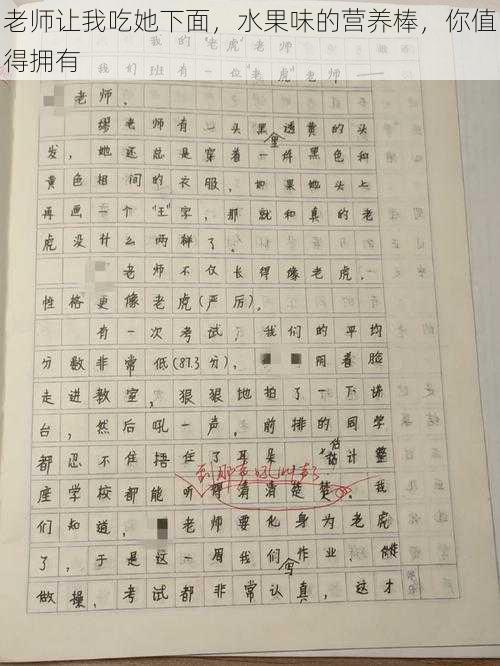 老师让我吃她下面，水果味的营养棒，你值
得拥有
的"老虎"老师
我们班有一位"老虎"老师
老师。
缪老师有一头黑里透黄的头
发，她还总是穿着一件黑色和
黄色相间的衣服，如果她头上
再画一个"王"字，那就和真的老
虎没什么两样了。
老师不仅长得像老虎，
性格更像老虎(严厉)。
有一次考试，我们的平均
分数非常低(87.3分)，阴着脸
走进教室，狠狠地拍了一下讲
台，然后吼一声，前排的同学
都忍不住捂住了耳朵，估计整
座学校都能听得清清楚楚。我
们知道，老师要化身为老虎
了，于是这一周我们写作业、做
做操、考试都非常认真，这才